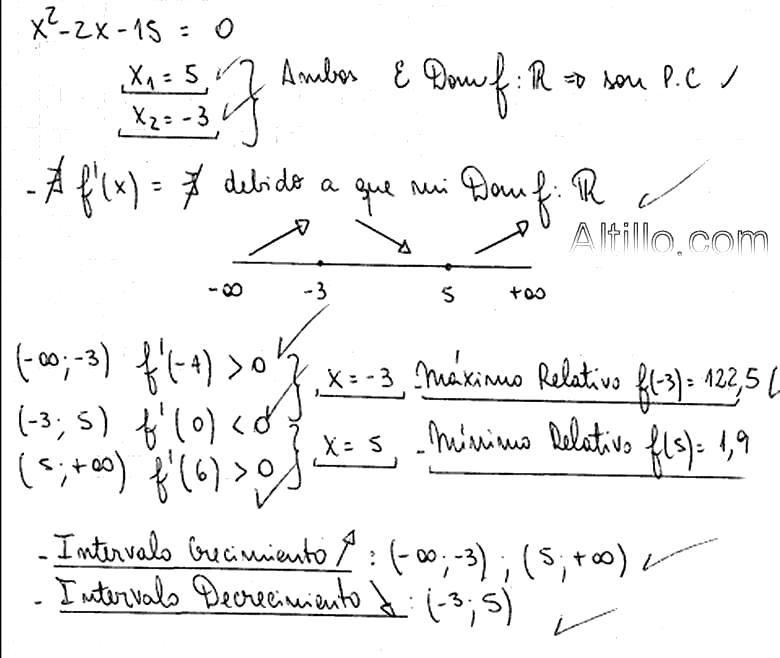 x²-2x-15 = 0
x₁ = 5
x₂ = -3
Ambos ∈ Dom f: ℝ ⇒ son P.C
- ∄ f'(x) = ∄ debido a que mi Dom f: ℝ
Altillo.com
-∞ -3 5 +∞
(-∞;-3) f'(-4) > 0
x = -3 - Máximo Relativo f(-3) = 122,5
(-3; 5) f'(0) < 0
x = 5 - Mínimo Relativo f(5) = 1,9
(5;+∞) f'(6) > 0
- Intervalo Crecimiento ↗ : (-∞;-3) ; (5;+∞)
- Intervalo Decrecimiento ↘ : (-3; 5)